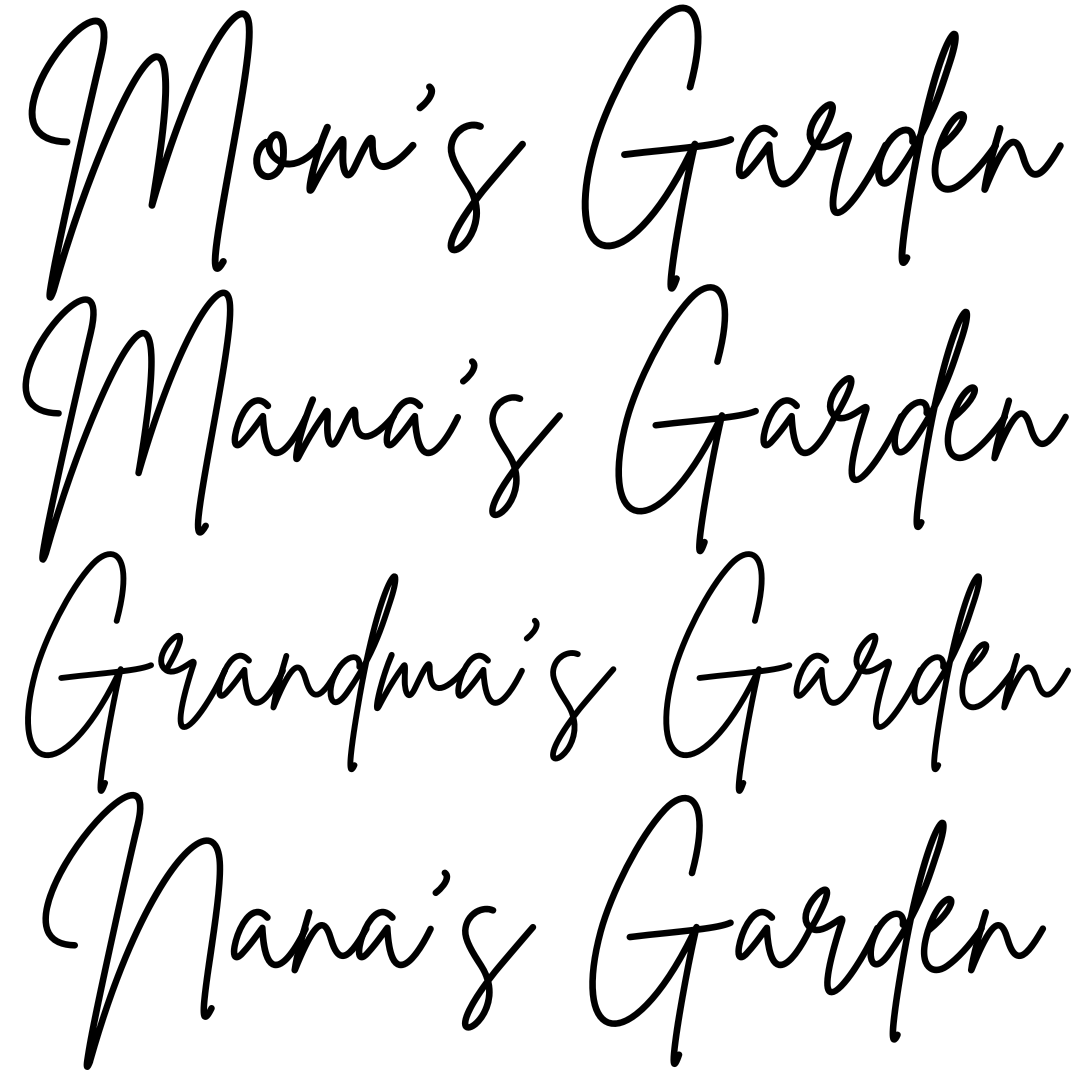 Mom's Garden
Mama's Garden
Grandma's Garden
Nana's Garden